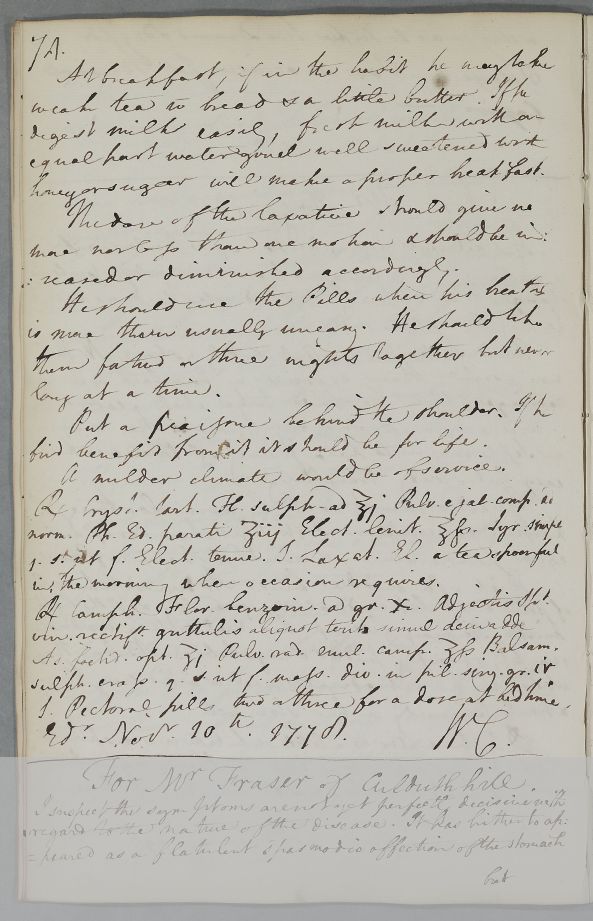 74.
At breakfast, if in the habit he may take
weak tea w bread & a little butter. If he
digest milk easily, fresh milk with an
equal part water gruel well sweetened with
honey or sugar will make a proper breakfast.
The dose of the laxative should give no
more nor less than one motion & should be in:
:creased or diminished accordingly.
He should use the Pills when his breath
is more than usually uneasy. He should take
them for two or three nights together but never
long at a time.
Put a pea issue behind the shoulder. If he
find benefit from it it should be for life.
A milder climate would be of service.
℞ Cryst. tart. Fl. sulph. ad ʒj Pulv. e jal. comp. ad
norm. Ph. Ed. parati ʒiij Elect. lenit. ℥fs. Syr. simpl
q. s. ut f. Elect. tenue. S. Laxat. El. a teaspoonful
in the morning when occasion requires.
℞ Camph. Flor. benzoin. a gr. X. Adjectis Spt.
vin. rectift. guttulis aliquot tere simul deinadde
As. foetid. opt. ʒj Pulv. rad. enul. camp. ʒfs Balsam.
sulph. crass. q. s ut f. mass. div. in pil. sing. gr. iv
S. Pectoral pills two or three for a dose at bed time.
Edr. Novr. 10th. 1778. W. C.
For Mr Fraser of Culduthhill.
I suspect the symptoms are not yet perfectly decisive with
regard to the nature of the disease. It has hitherto ap:
=peared as a flatulent spasmodic affection of the stomach
but